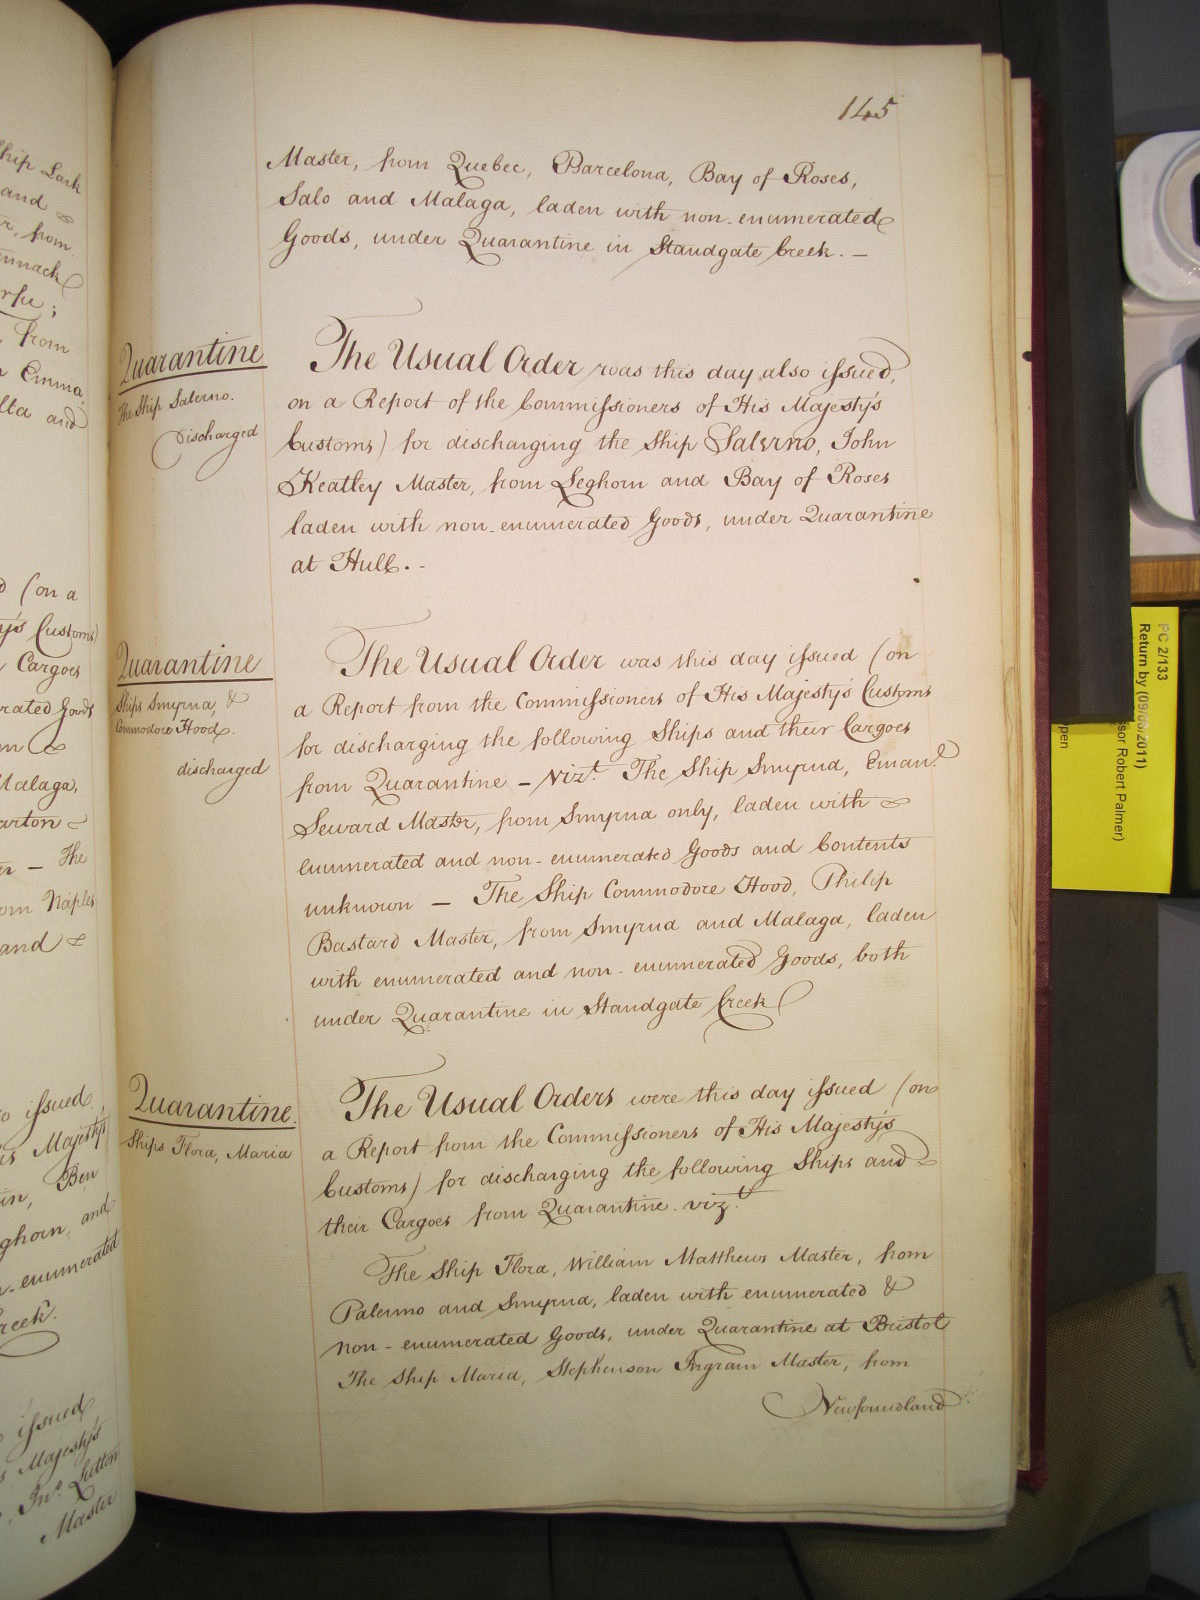 145
Master, from Quebec, Barcelona, Bay of Roses,
Salo and Malaga, laden with non-enumerated
Goods, under Quarantine in Standgate Creek. —
Quarantine
The Ship Salerno.
Discharged
The Usual Order was this day also issued,
on a Report of the Commissioners of His Majesty's
Customs) for discharging the Ship Salerno, John
Keatley Master, from Leghorn and Bay of Roses
laden with non-enumerated Goods, under Quarantine
at Hull. -
Quarantine
Ships Smyrna, &
Commodore Hood.
discharged
The Usual Order was this day issued (on
a Report from the Commissioners of His Majesty's Customs
for discharging the following Ships and their Cargoes
from Quarantine - Vizt. The Ship Smyrna, Emanl.
Seward Master, from Smyrna only, laden with
enumerated and non-enumerated Goods and Contents
unknown — The Ship Commodore Hood, Philip
Bastard Master, from Smyrna and Malaga, laden
with enumerated and non-enumerated Goods, both
under Quarantine in Standgate Creek
Quarantine.
Ships Flora, Maria
The Usual Orders were this day issued (on
a Report from the Commissioners of His Majesty's
Customs) for discharging the following Ships and
their Cargoes from Quarantine. vizt.
The Ship Flora, William Matthews Master, from
Palermo and Smyrna, laden with enumerated &
non-enumerated Goods, under Quarantine at Bristol
The Ship Maria, Stephenson Ingram Master, from
Newfoundland
ship Lark
and
from
from
Emma,
lta and
(on a
Customs)
Cargoes
rated Goods
Malaga,
arton
— The
om Naples
and
o issued
Majesty's
Ben
ghorn, and
enumerated
reek.
issued
Majesty's
Jno. Lutton
Master
PC 2/133
Return by (09/0 /2011)
sor Robert Palmer)
pen